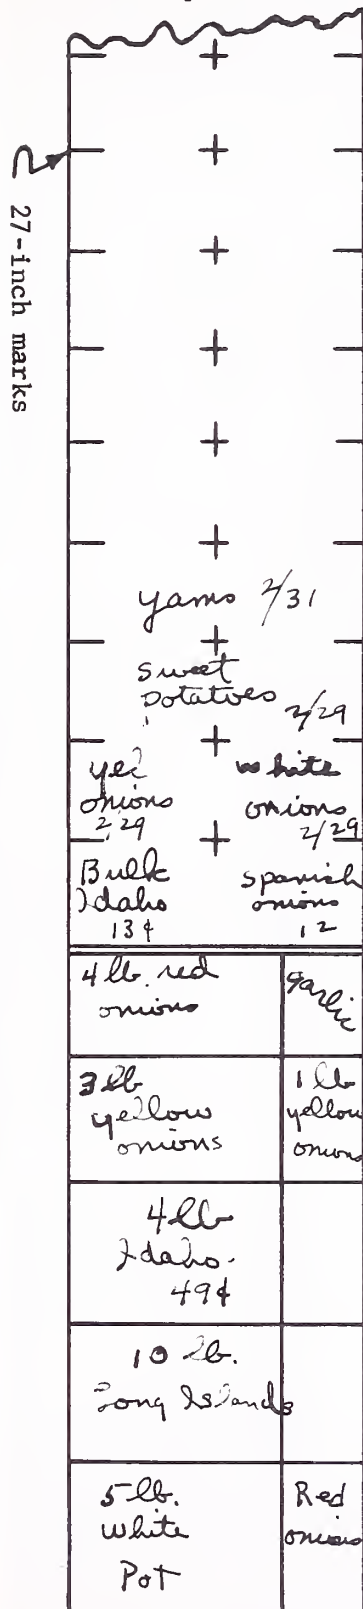 27-inch marks
yams 2/31
sweet
potatoes 2/29
yel
onions
2/29
white
onions
2/29
Bulk
Idaho
13¢
Spanish
onions
12
4 lb. red
onions
garlic
3 lb
yellow
onions
1 lb
yellow
onions
4 lb
Idaho.
49¢
10 lb.
Long Islands
5 lb.
white
Pot
Red
onions